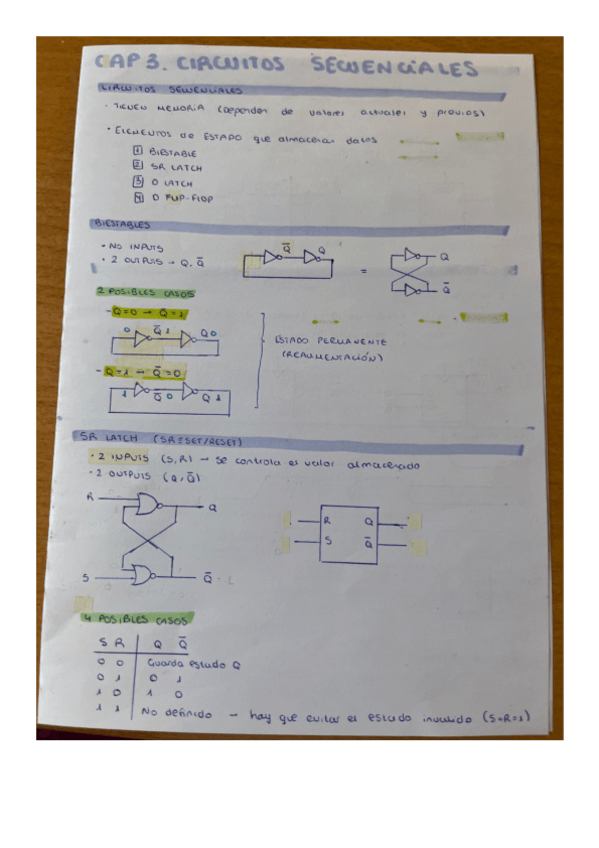 CAP 3. CIRCUITOS SECUENCIALES
CIRCUITOS SECUENCIALES
· TIENEN MEMORIA (Dependen de valores actuales y previos)
· ELEMENTOS DE ESTADO que almacenan datos
1 BIESTABLE
2 SR LATCH
3 D LATCH
4 D FLIP-FLOP
BIESTABLES
- NO INPUTS
· 2 OUTPUTS → Q, Q̅
Q̅ Q
=
Q
Q̅
2 POSIBLES CASOS
- Q=0 → Q̅=1
0 Q̅ 1 Q 0
ESTADO PERMANENTE
(REALIMENTACIÓN)
- Q=1 → Q̅=0
1 Q̅ 0 Q 1
SR LATCH (SR=SET/RESET)
· 2 INPUTS (S,R) → se controla el valor almacenado
· 2 OUTPUTS (Q, Q̅)
R Q
S Q̅
R Q
S Q̅
4 POSIBLES CASOS
S R Q Q̅
0 0 Guarda estado Q
0 1 0 1
1 0 1 0
1 1 No definido - hay que evitar el estado invalido (S=R=1)